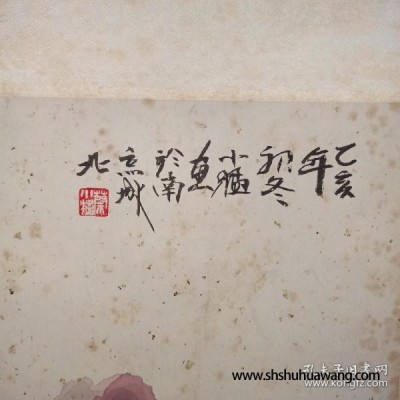 乙亥
年
初冬
小猛
画
於南
京城
北
www.shshuhuawang.com
孔夫子旧书网